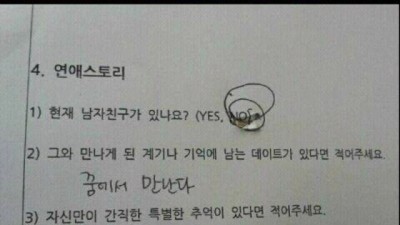 4. 연애스토리
1) 현재 남자친구가 있나요? (YES, NO)
2) 그와 만나게 된 계기나 기억에 남는 데이트가 있다면 적어주세요.
꿈에서 만난다
3) 자신만이 간직한 특별한 추억이 있다면 적어주세요.